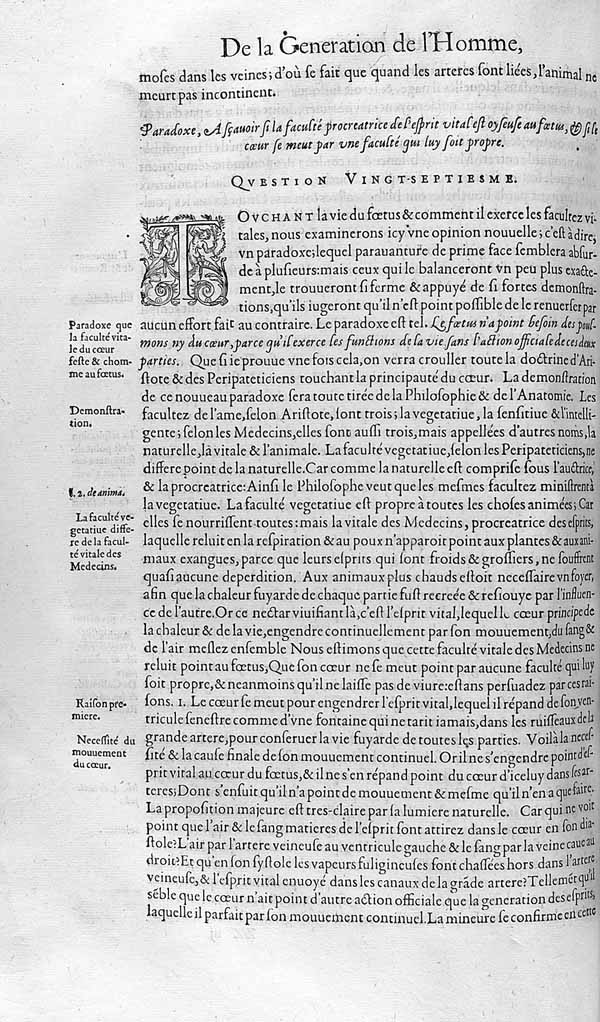 De la Generation de l'Homme,
moſes dans les veines; d'où ſe fait que quand les arteres ſont liées, l'animal ne
meurt pas incontinent.
Paradoxe, A ſçauoir ſi la faculté procreatrice de l'eſprit vital eſt oyſeuſe au fœtus, & ſi le
cœur ſe meut par vne faculté qui luy ſoit propre.
QVESTION VINGT-SEPTIESME.
TOVCHANT la vie du fœtus & comment il exerce les facultez vi-
tales, nous examinerons icy vne opinion nouuelle; c'eſt à dire,
vn paradoxe; lequel parauanture de prime face ſemblera abſur-
de à pluſieurs: mais ceux qui le balanceront vn peu plus exacte-
ment, le trouueront ſi ferme & appuyé de ſi fortes demonſtra-
tions, qu'ils iugeront qu'il n'eſt point poſſible de le renuerſer par
aucun effort fait au contraire. Le paradoxe eſt tel. Le fœtus n'a point beſoin des poul-
mons ny du cœur, parce qu'il exerce les functions de la vie ſans l'action officiale de ces deux
parties. Que ſi ie prouue vne fois cela, on verra crouller toute la doctrine d'Ari-
ſtote & des Peripateticiens touchant la principauté du cœur. La demonſtration
de ce nouueau paradoxe ſera toute tirée de la Philoſophie & de l'Anatomie. Les
facultez de l'ame, ſelon Ariſtote, ſont trois; la vegetatiue, la ſenſitiue & l'intelli-
gente; ſelon les Medecins, elles ſont auſſi trois, mais appellées d'autres noms, la
naturelle, la vitale & l'animale. La faculté vegetatiue, ſelon les Peripateticiens, ne
differe point de la naturelle. Car comme la naturelle eſt compriſe ſous l'auctrice,
& la procreatrice: Ainſi le Philoſophe veut que les meſmes facultez miniſtrent à
la vegetatiue. La faculté vegetatiue eſt propre à toutes les choſes animées; Car
elles ſe nourriſſent toutes: mais la vitale des Medecins, procreatrice des eſprits,
laquelle reluit en la reſpiration & au poux n'apparoit point aux plantes & aux ani-
maux exangues, parce que leurs eſprits qui ſont froids & groſſiers, ne ſouffrent
quaſi aucune deperdition. Aux animaux plus chauds eſtoit neceſſaire vn foyer,
afin que la chaleur fuyarde de chaque partie fuſt recreée & reſiouye par l'influen-
ce de l'autre. Or ce nectar viuifiant là, c'eſt l'eſprit vital, lequel le cœur principe de
la chaleur & de la vie, engendre continuellement par ſon mouuement, du ſang &
de l'air meſlez enſemble Nous eſtimons que cette faculté vitale des Medecins ne
reluit point au fœtus, Que ſon cœur ne ſe meut point par aucune faculté qui luy
ſoit propre, & neanmoins qu'il ne laiſſe pas de viure: eſtans perſuadez par ces rai-
ſons. 1. Le cœur ſe meut pour engendrer l'eſprit vital, lequel il répand de ſon ven-
tricule ſeneſtre comme d'vne fontaine qui ne tarit iamais, dans les ruiſſeaux de la
grande artere, pour conſeruer la vie fuyarde de toutes les parties. Voilà la neceſ-
ſité & la cauſe finale de ſon mouuement continuel. Or il ne s'engendre point d'eſ-
prit vital au cœur du fœtus, & il ne s'en répand point du cœur d'iceluy dans ſes ar-
teres; Dont s'enſuit qu'il n'a point de mouuement & meſme qu'il n'en a que faire.
La propoſition majeure eſt tres-claire par la lumiere naturelle. Car qui ne voit
point que l'air & le ſang matieres de l'eſprit ſont attirez dans le cœur en ſon dia-
ſtole? L'air par l'artere veineuſe au ventricule gauche & le ſang par la veine caue au
droit? Et qu'en ſon ſyſtole les vapeurs fuligineuſes ſont chaſſées hors dans l'artere
veineuſe, & l'eſprit vital enuoyé dans les canaux de la grãde artere? Tellemẽt qu'il
ſẽble que le cœur n'ait point d'autre action officiale que la generation des eſprits,
laquelle il parfait par ſon mouuement continuel. La mineure ſe confirme en cette
Paradoxe que
la faculté vita-
le du cœur
feſte & chom-
me au fœtus.
Demonſtra-
tion.
l. 2. de anima.
La faculté ve-
getatiue diffe-
re de la facul-
té vitale des
Medecins.
Raiſon pre-
miere.
Neceſſité du
mouuement
du cœur.